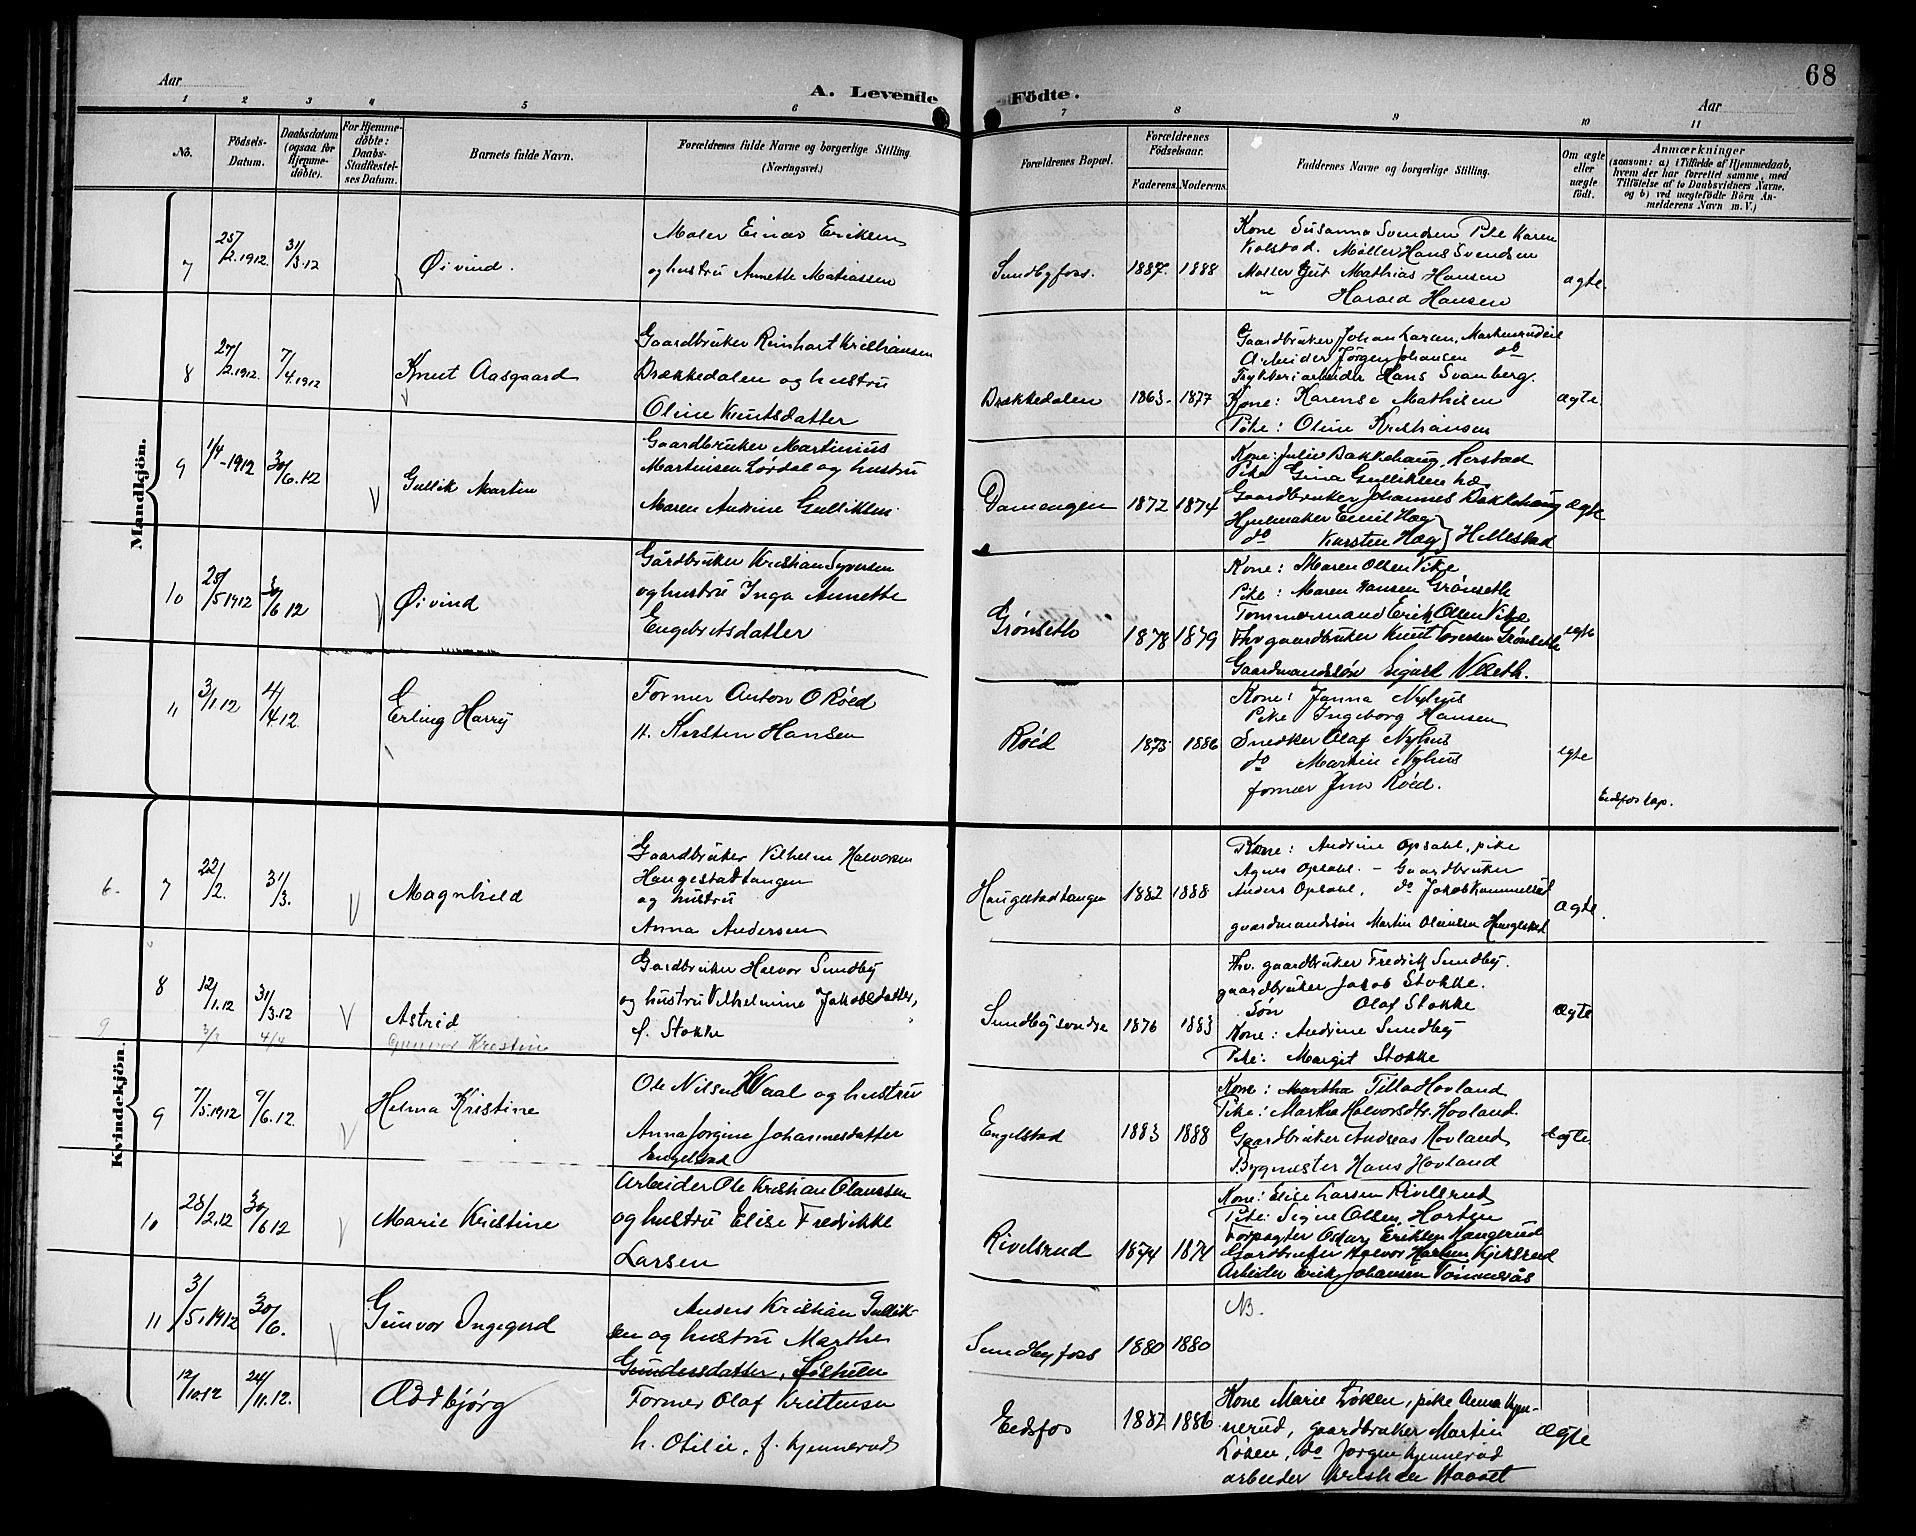 68
Aar
A. Levende
Födte.
Aar
1 2 3 4 5 6 7 8 9 10 11
No.
Födsels-
Datum.
Daabsdatum
(ogsaa for
Hjemme-
döbte).
For Hjemme-
döbte:
Daabs-
Stadfæstel-
ses Datum.
Barnets fulde Navn.
Forældrenes fulde Navne og borgerlige Stilling.
(Næringsvei.)
Forældrenes Bopæl.
Forældrenes
Födselsaar.
Faderens. Moderens.
Faddernes Navne og borgerlige Stilling.
Om ægte
eller
uægte
födt.
Anmærkninger
(saasom: a) i Tilfælde af Hjemmedaab,
hvem der har forrettet samme, med
Tilföielse af to Daabsvidners Navne.
og b) ved uægtefödte Börn An-
melderens Navn m. V.)
Mandkjön.
7
25/2.1912.
31/3.12
Øivind.
Maler Einar Eriksen
og hustru Annette Matiassen
Sundbyfoss.
1887. 1888
Kone Susanna Svendsen Pike Karen
Kolstad. Møller Hans Svendsen
Møller Gut Mathias Hansen
" Harald Hansen
ægte.
8
27/2.1912.
7/4.1912
Knut Aasgaard
Gaardbruker Reinhart Kristiansen
Brækkedalen og hustru
Oline Knutsdatter
Brækkedalen
1863. 1877
Gaardbruker Johan Larsen,
Arbeider Jørgen Johansen do
Trykkeriarbeider Hans Svanberg.
Kone: Karense Mathisen
Pike: Oline Kristiansen
ægte.
9
1/4-1912
30/6.12
Gullik Martin
Gaardbruker Martinius
Martinsen Lørdal og hustru
Maren Andrine Gulliksen
Damengen
1872 1874
Kone: Julie Bakkehaug, Herstad
Pike Gina Gulliksen
Gaardbruker Johannes Bakkehaug
Hjulmaker Emil Hæg
do Karsten Hæg } Hillestad
ægte
10
25/5 1912
30/6 12
Øivind
Gårdbruker Kristian Syversen
og hustru Inga Annette
Engebretsdatter
Grønseth
1878 1879
Kone: Maren Olsen Vike
Pike: Maren Hansen Grønseth
Tømmermand Erik Olsen Vike
Fhv gaardbruker Knut Iversen Grønseth
Gaardmandssøn Sigurd
egte
11
3/1.12
4/4.12.
Erling Harry
Former Anton O Røed
H. Kirsten Hansen
Røed
1873 1886
Kone: Janna Nyhus
Pike Ingeborg Hansen
Snedker Olaf Nyhus
do Martin Nyhus
former Jens Røed.
egte
Eidsfos kap.
Kvindekjön.
6.
7
22/2.
31/3.
Magnhild
Gaardbruker Vilhelm Halvorsen
Haugestadtangen
og hustru
Anna Andersen
Haugestadtangen
1882 1888
Kone: Andrine Opsahl, pike
Agnes Opsahl. - Gaardbruker
Anders Opsahl, do Jakob Kummelsrud
gaardmandssøn Martin Olaussen Haugestad
ægte.
8
12/1.12
31/3.12
Astrid
Gardbruker Halvor Sundby
og hustru Vilhelmine Jakobsdatter,
f. Stokke
Sundby søndre
1876 1883
Fhv. gaardbruker Fredrik Sundby.
gaardbruker Jakob Stokke.
Søn Olaf Stokke
Kone: Andrine Sundby
Pike: Margit Stokke
ægte
9
3/2
4/4
Gunvor Kristin
9
7/5.1912
9/6.12.
Helma Kristine
Ole Nilsen Waal og hustru
Anna Jorgine Johannesdatter
Engelstad
Engelstad
1883 1888
Kone: Martha Tilla Hovland
Pike: Martha Halvorsdtr. Hovland.
Gaardbruker Andreas Hovland
Bygmester Hans Hovland
egte
10
28/2.12
30/6 12
Marie Kristine
Arbeider Ole Kristian Olaussen
og hustru Elise Fredrikke
Larsen
Rivelsrud
1874 1874
Kone: Elise Larsen Rivelsrud
Pike: Signe Olsen, Horten
Forpagter Oskar Eriksen Haugerud
Gårdbruker Halvor Kjeksrud
Arbeider Erik Johansen Tømmerås
11
3/5.1912
30/6.
Gunvor Ingegerd
Anders Kristian Gullik-
sen og hustru Marthe
Gundersdatter, Solhem
Sundbyfoss
1880 1880
NB.
12/10.12
24/11.12.
Oddbjørg
Former Olaf Kristensen
h. Otilie, f. Hjennerud
Eidsfos
1882 1886
Kone Marie Løken, pike Anna Hjen-
nerud, gaardbruker Martin
Løken, do Jørgen Hjennerud
arbeider Kristian Haavet
Ægte